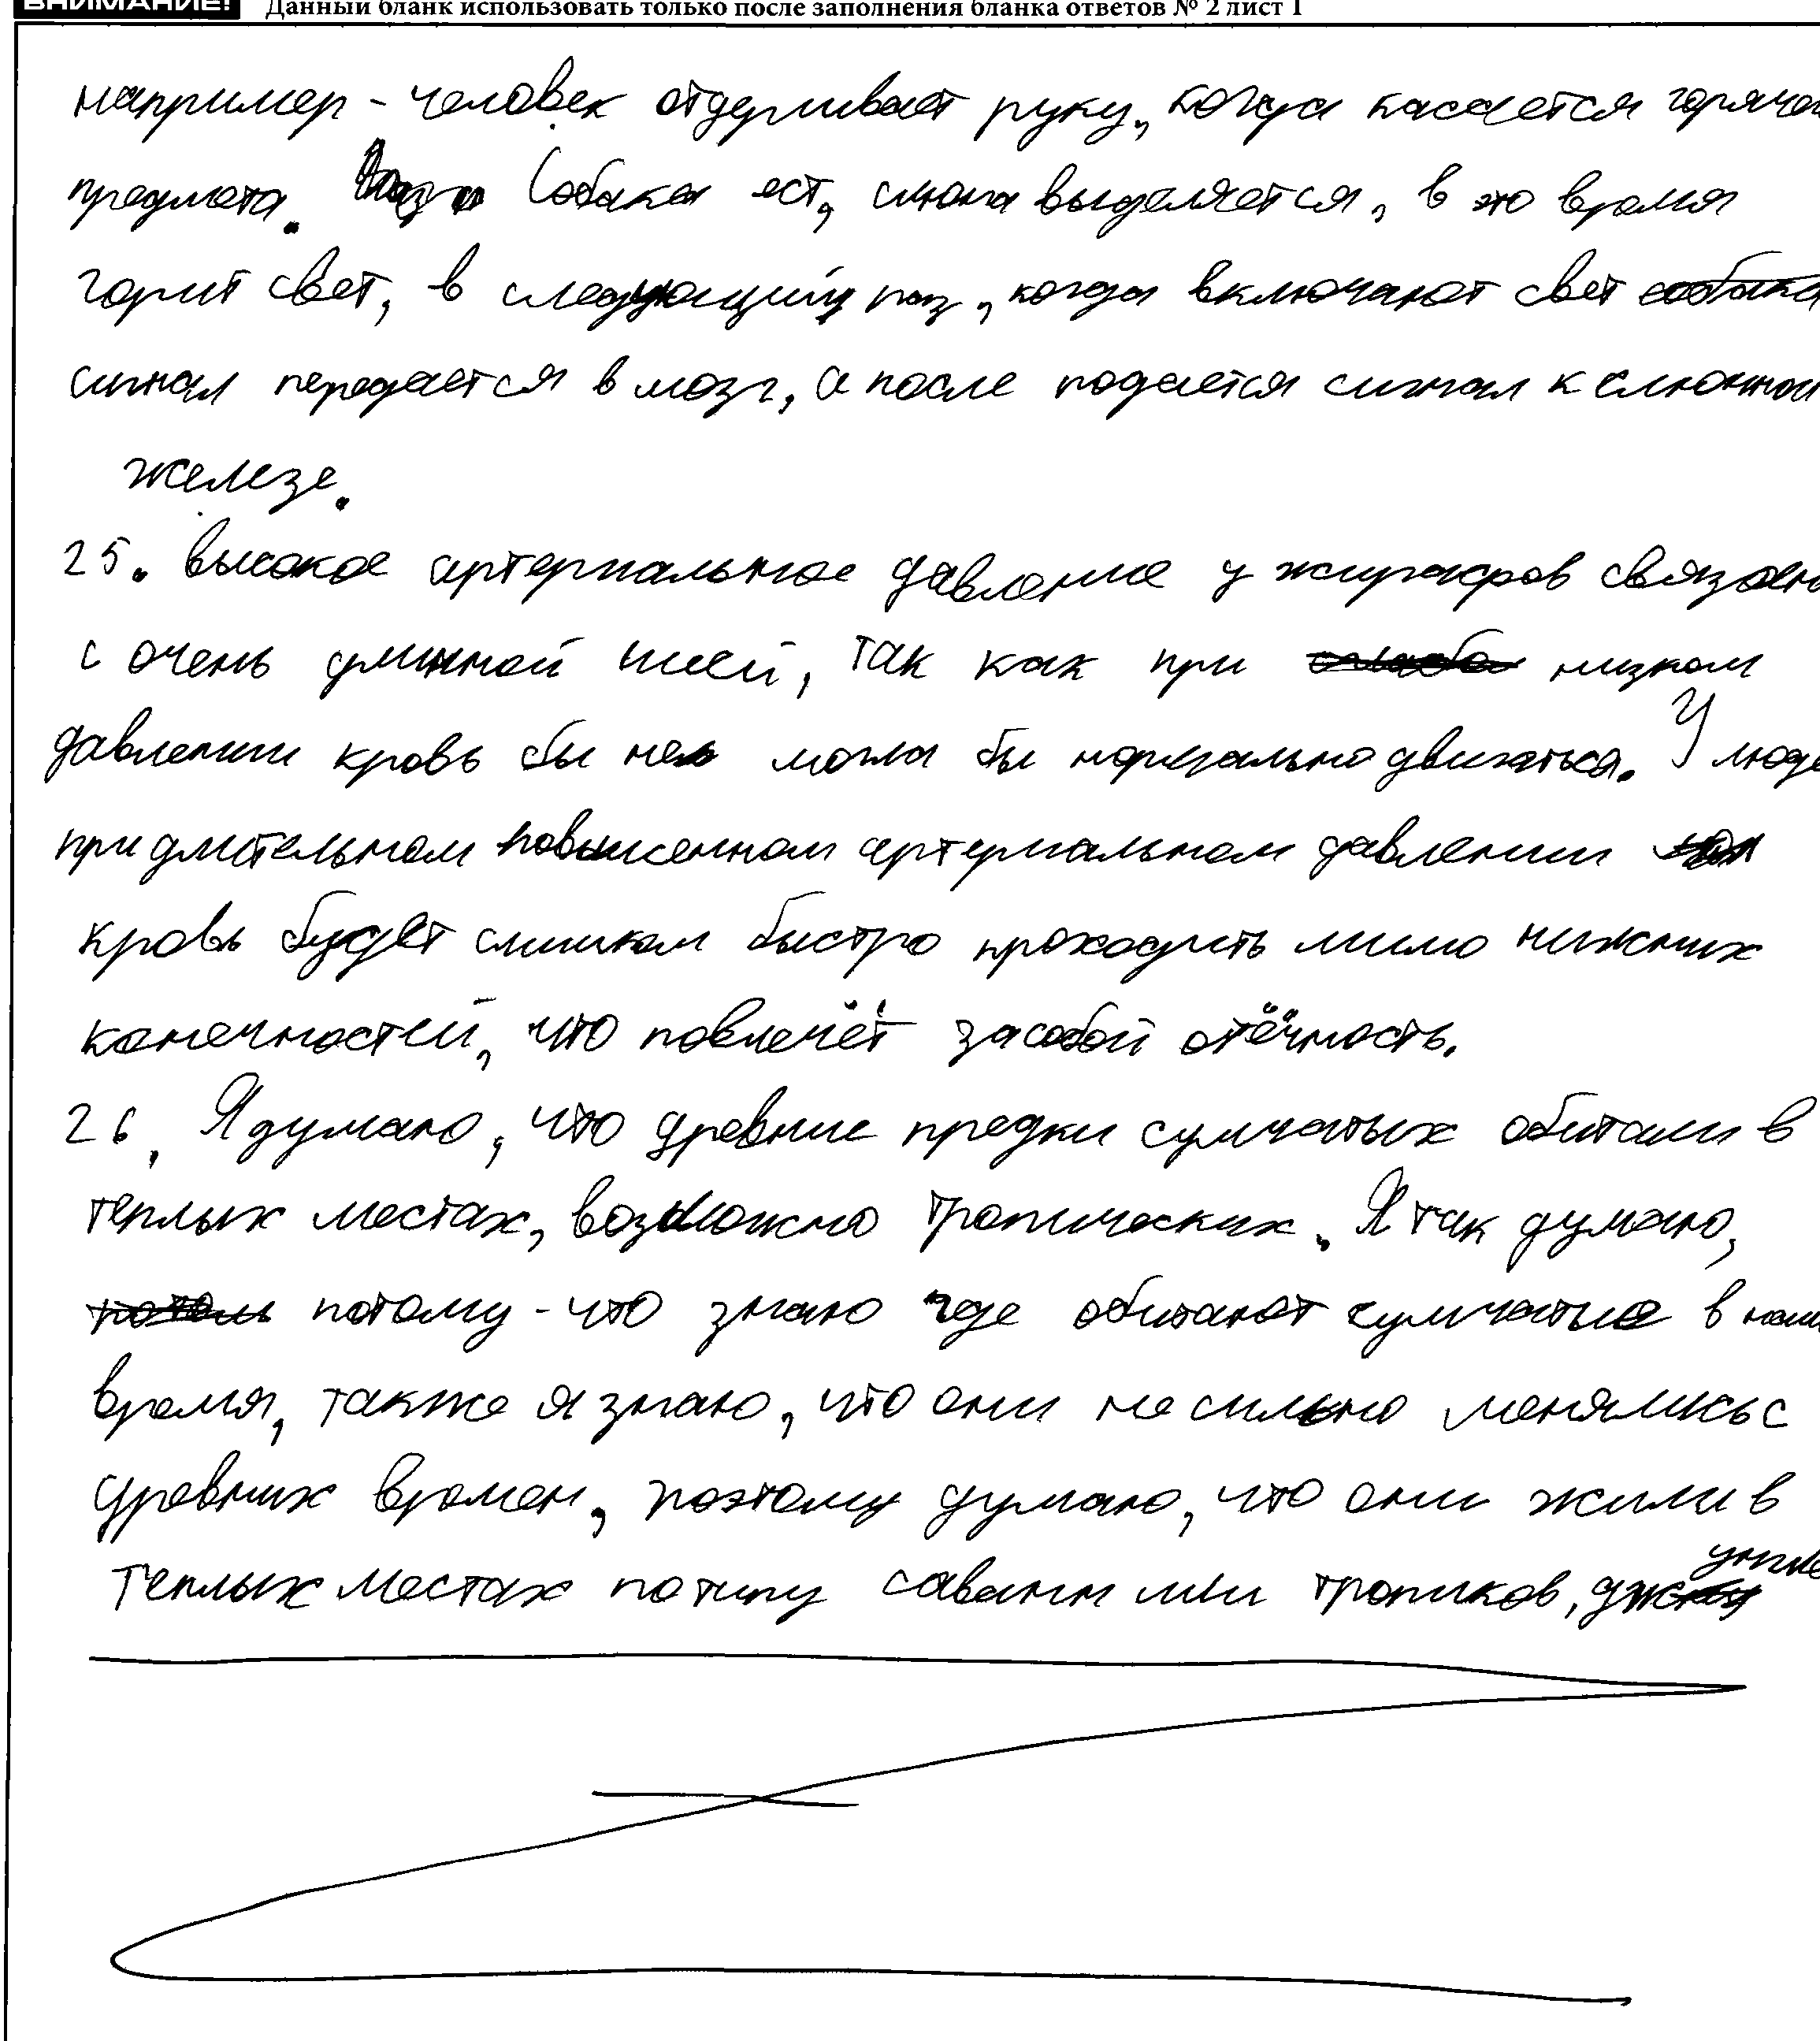 ВНИМАНИЕ! Данный бланк использовать только после заполнения бланка ответов № 2 лист 1
например - человек отдергивает руку, когда касается горячег
предмета. Собака ест, слюна выделяется, в это время
горит свет, в следующий раз, когда включают свет собака
сигнал передается в мозг, а после подается сигнал к слюнной
железе.
25. высокое артериальное давление у жирафов связан
с очень длинной шеей, так как при низком
давлении кровь бы не могла бы нормально двигаться. У люде
при длительном повышенном артериальном давлении
кровь будет слишком быстро проходить мимо нижних
конечностей, что повлечёт засобой отёчность.
26. Я думаю, что древние предки сумчатых обитали в
теплых местах, возможно тропических. Я так думаю,
потому-что знаю где обитают сумчатые в наш
время, также я знаю, что они не сильно менялись с
древних времен, поэтому думаю, что они жили в
теплых местах по типу саванн или тропиков,